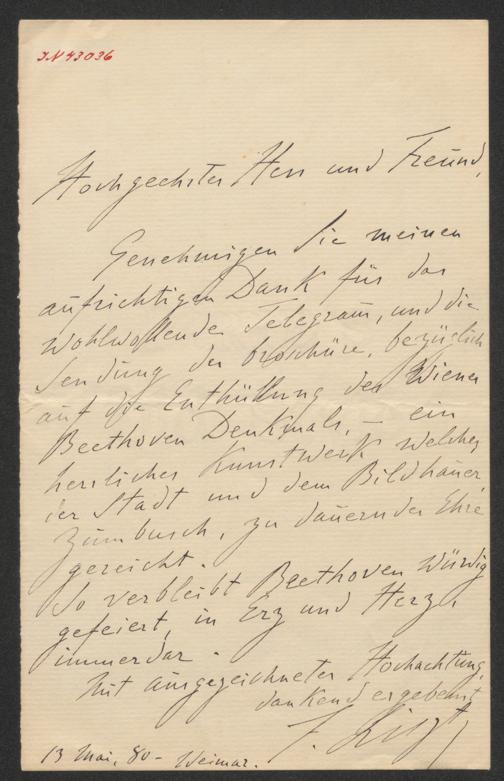 IN 43036
Hochgeehrter Herr und Freund,
Genehmigen Sie meinen
aufrichtigen Dank für das
wohlwollende Telegram, und die
Sendung der broschüre, bezüglich
auf die Enthüllung des Wiener
Beethoven Denkmals, – ein
herrliches Kunstwerk welches
der Stadt und dem Bildhauer
Zumbusch, zu dauernder Ehre
gereicht.
So verbleibt Beethoven würdig
gefeiert, in Erz und Herz,
immerdar.
Mit ausgezeichneter Hochachtung,
dankend ergebenst
F. Liszt
13 Mai, 80 – Weimar.